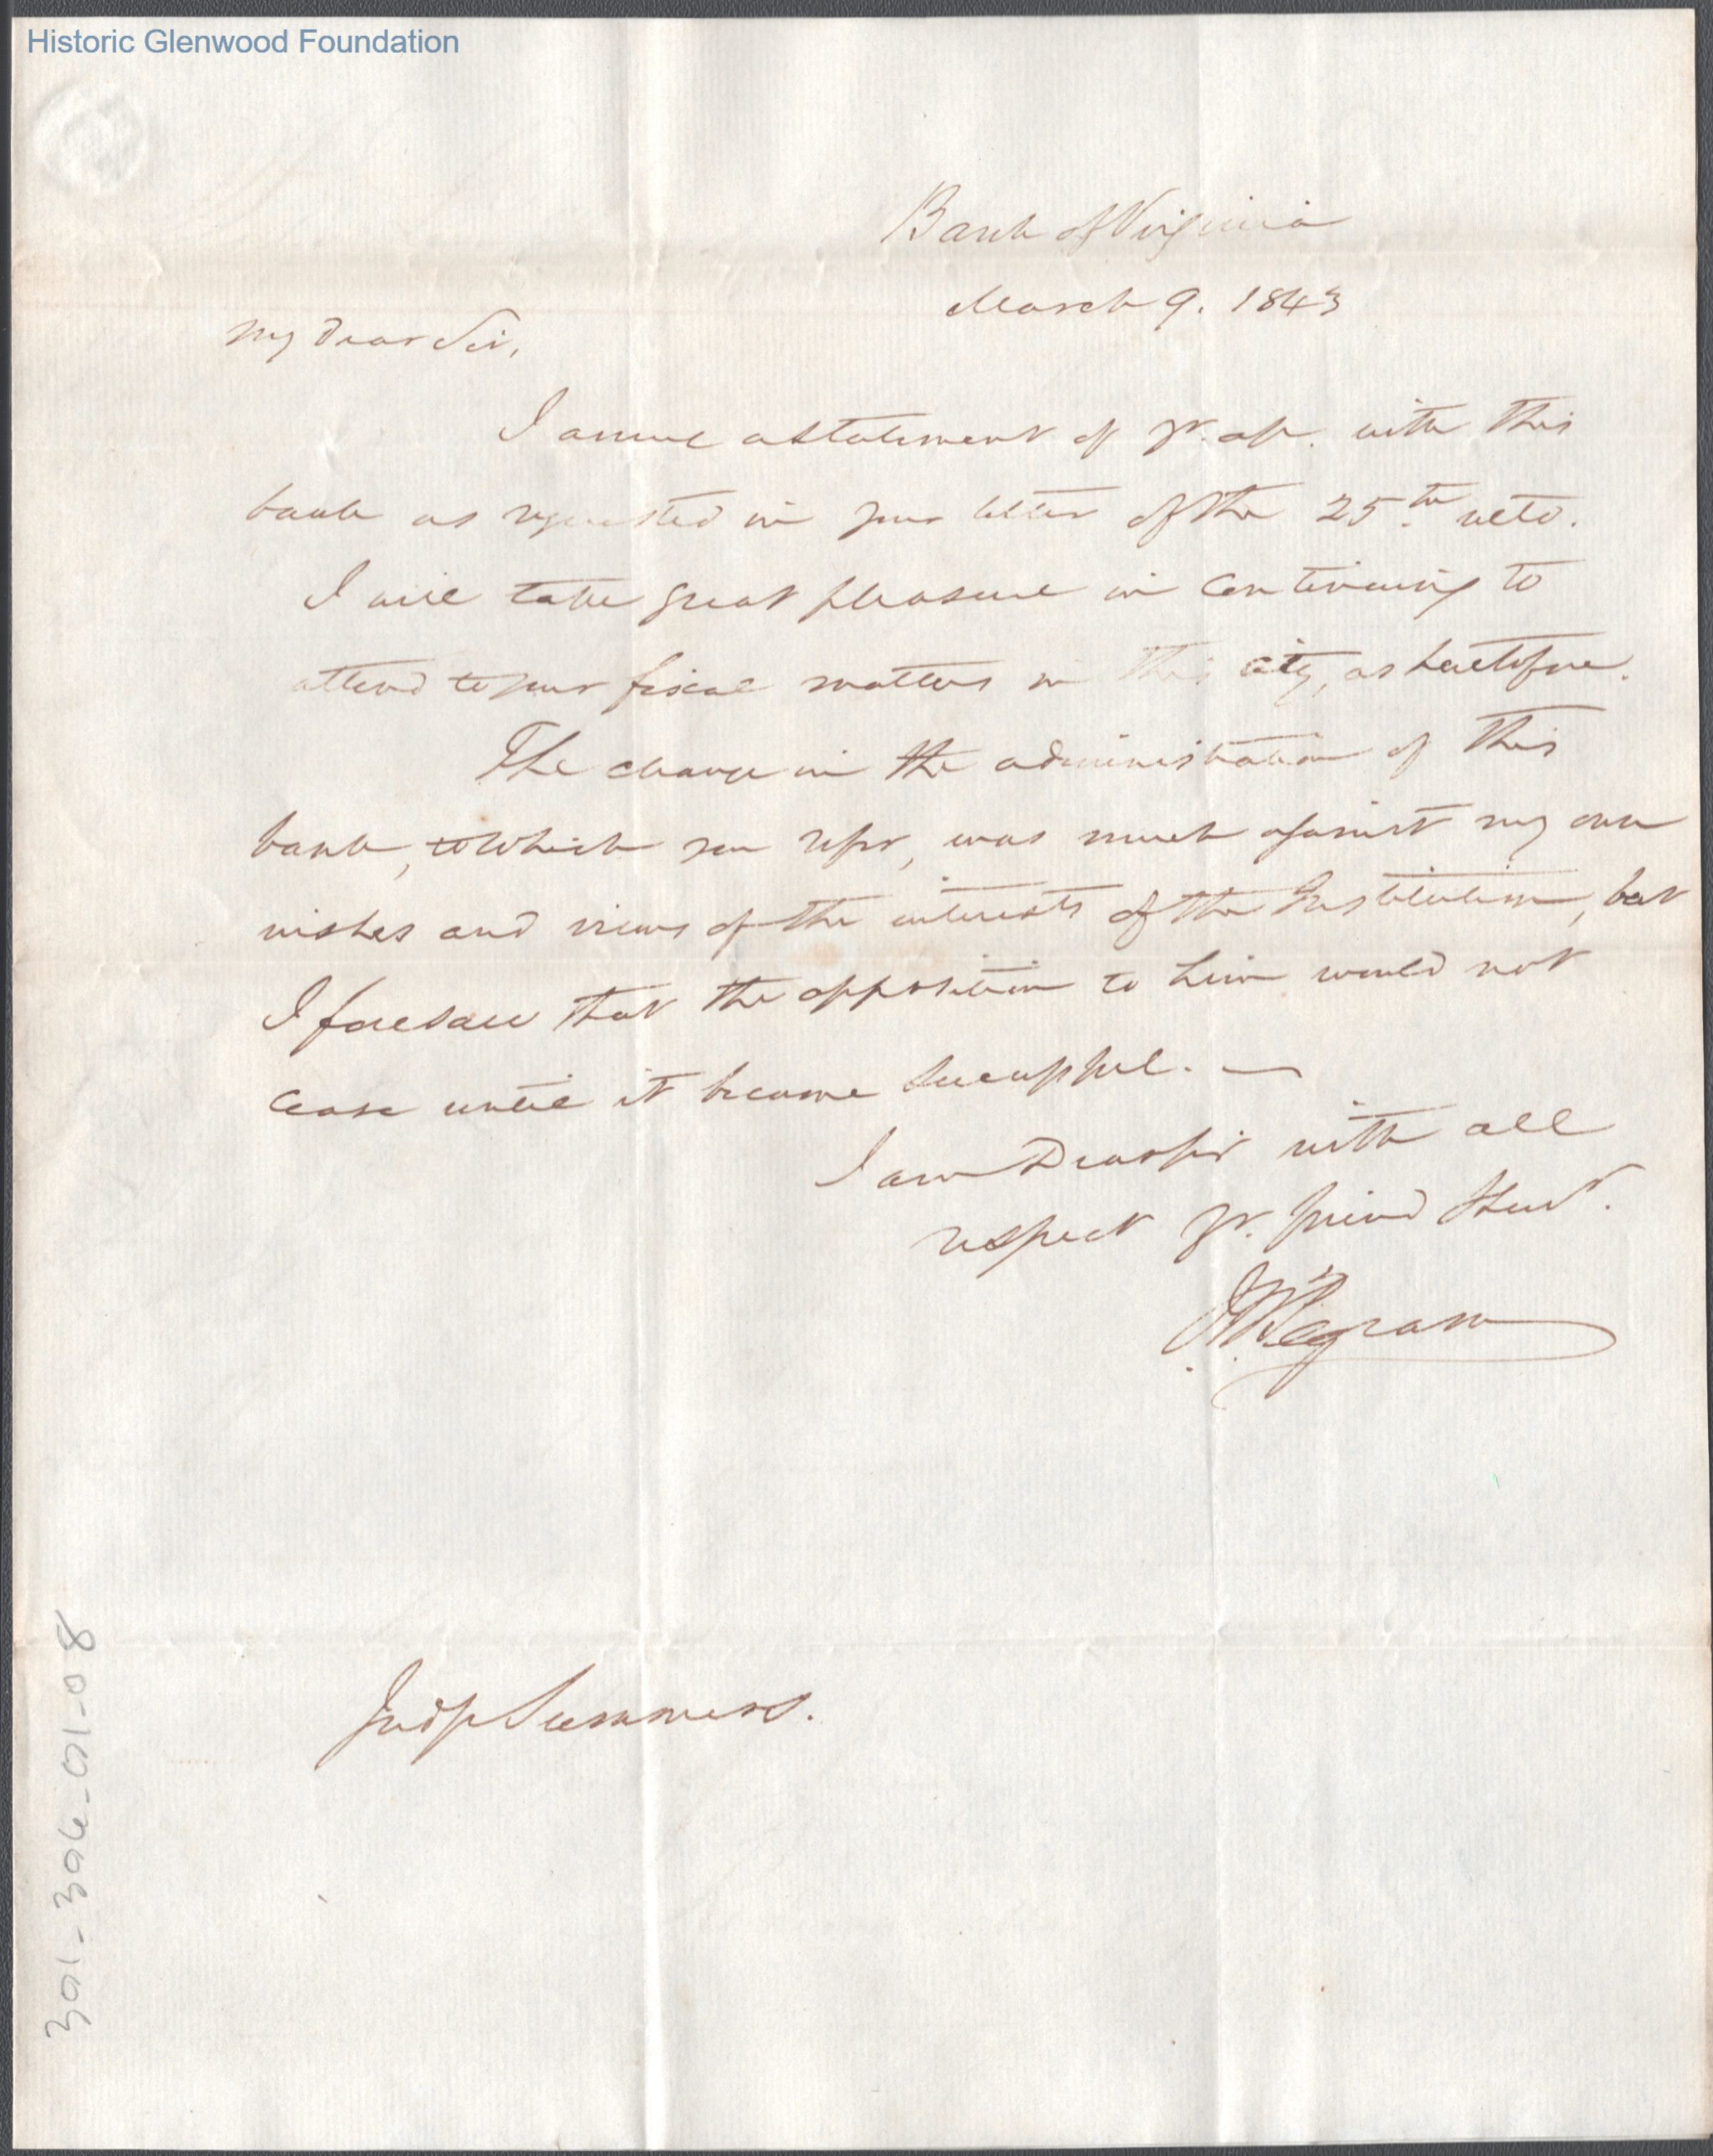 Historic Glenwood Foundation
Bank of Virginia
March 9. 1843
My Dear Sir,
I annex a statement of yr. a/c. with this
bank as requested in your letter of the 25th ulto.
I will take great pleasure in continuing to
attend to your fiscal matters in this city, as heretofore.
The change in the administration of this
bank, to which you refer, was much against my own
wishes and views of the interests of the Institution, but
I foresaw that the opposition to him would not
cease until it became successful. —
I am Dear Sir with all
respect yr. friend & Servt.
J. W. Pegram
Judge Summers.
301-306-01-08